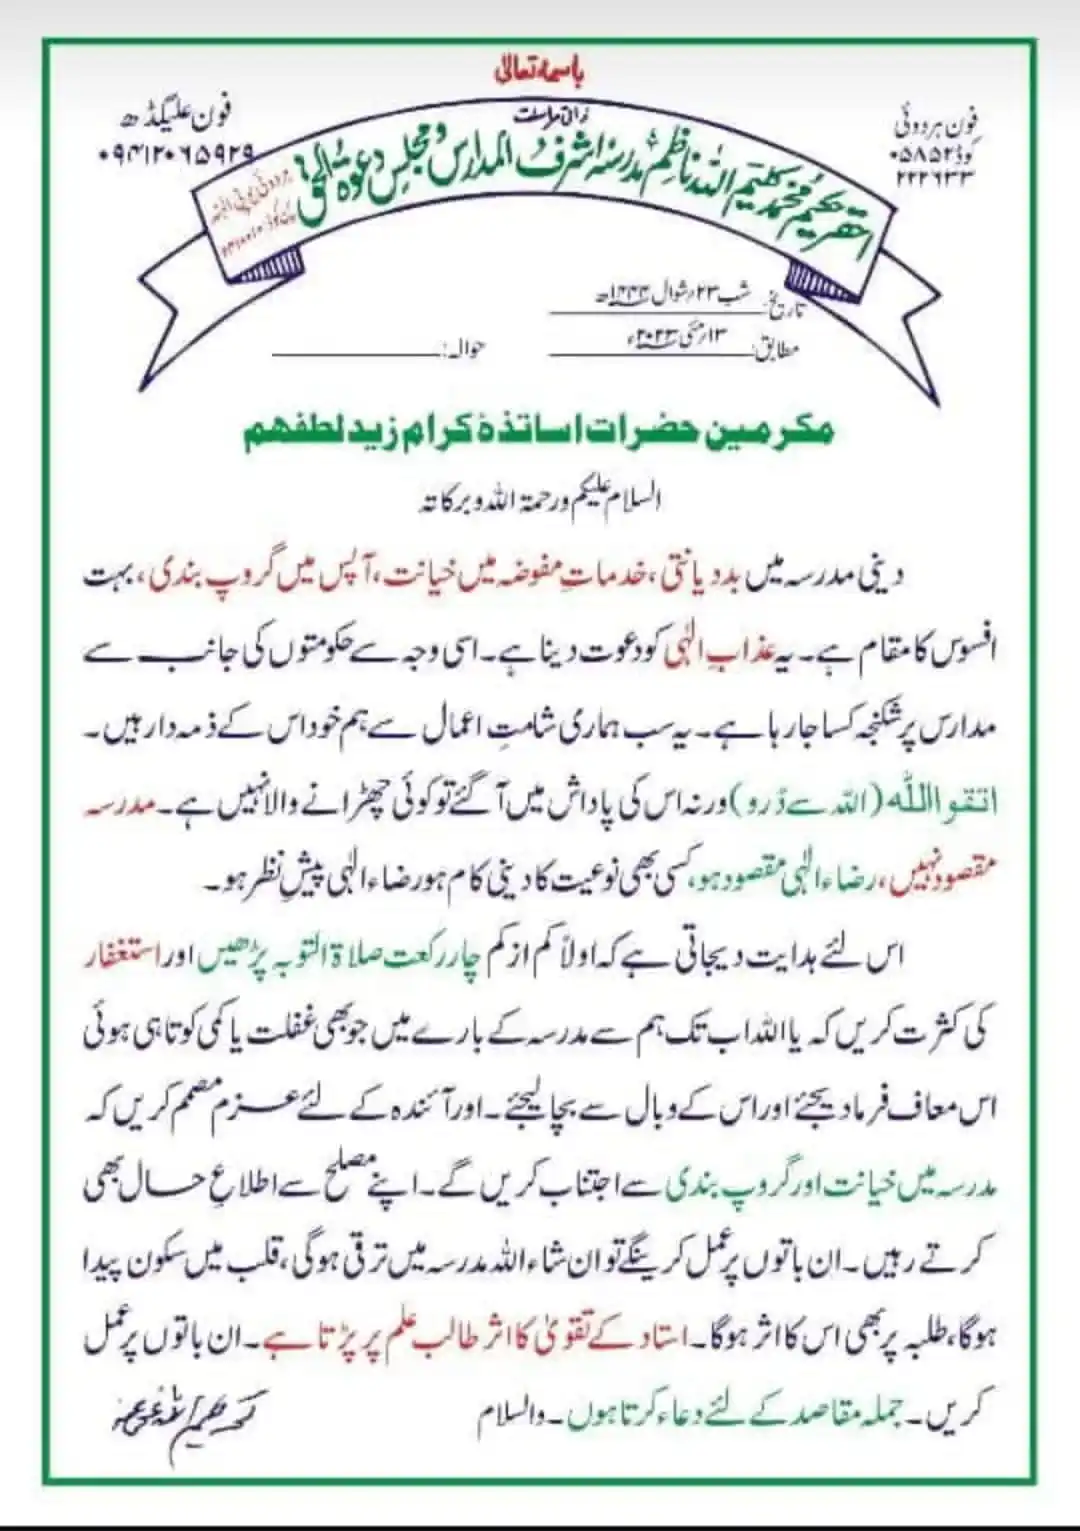 باسمہ تعالیٰ
فون علیگڈھ
۰۹۴۱۲۰۶۵۹۲۹
فون ہردوئی
کوڈ ۰۵۸۵۲
۲۲۲۶۳۳
احقر حکیم محمد کلیم اللہ ناظم مدرسہ اشرف المدارس و مجلس دعوۃ الحق
ہردوئی یوپی الہند
تاریخ: شب ۲۳؍شوال ۱۴۴۴ھ
مطابق: ۱۳؍مئی ۲۰۲۳ء
حوالہ:
مکرمین حضرات اساتذۂ کرام زید لطفهم
السلام علیکم ورحمۃ اللہ وبرکاتہ
دینی مدرسہ میں بددیانتی، خدماتِ مفوضہ میں خیانت، آپس میں گروپ بندی، بہت
افسوس کا مقام ہے۔ یہ عذابِ الٰہی کو دعوت دینا ہے۔ اسی وجہ سے حکومتوں کی جانب سے
مدارس پر شکنجہ کسا جارہا ہے۔ یہ سب ہماری شامتِ اعمال سے ہم خود اس کے ذمہ دار ہیں۔
اتقوا اللّٰہ (اللہ سے ڈرو) ورنہ اس کی پاداش میں آگئے تو کوئی چھڑانے والا نہیں ہے۔ مدرسہ
مقصود نہیں، رضاء الٰہی مقصود ہو، کسی بھی نوعیت کا دینی کام ہو رضاء الٰہی پیشِ نظر ہو۔
اس لئے ہدایت دیجاتی ہے کہ اولاً کم از کم چار رکعت صلاۃ التوبہ پڑھیں اور استغفار
کی کثرت کریں کہ یا اللہ اب تک ہم سے مدرسہ کے بارے میں جو بھی غفلت یا کمی کوتاہی ہوئی
اس معاف فرمادیجئے اور اس کے وبال سے بچالیجئے۔ اور آئندہ کے لئے عزم مصمم کریں کہ
مدرسہ میں خیانت اور گروپ بندی سے اجتناب کریں گے۔ اپنے مصلح سے اطلاعِ حال بھی
کرتے رہیں۔ ان باتوں پر عمل کرینگے تو ان شاء اللہ مدرسہ میں ترقی ہوگی، قلب میں سکون پیدا
ہوگا، طلبہ پر بھی اس کا اثر ہوگا۔ استاد کے تقویٰ کا اثر طالب علم پر پڑتا ہے۔ ان باتوں پر عمل
کریں۔ جملہ مقاصد کے لئے دعاء کرتا ہوں۔ والسلام